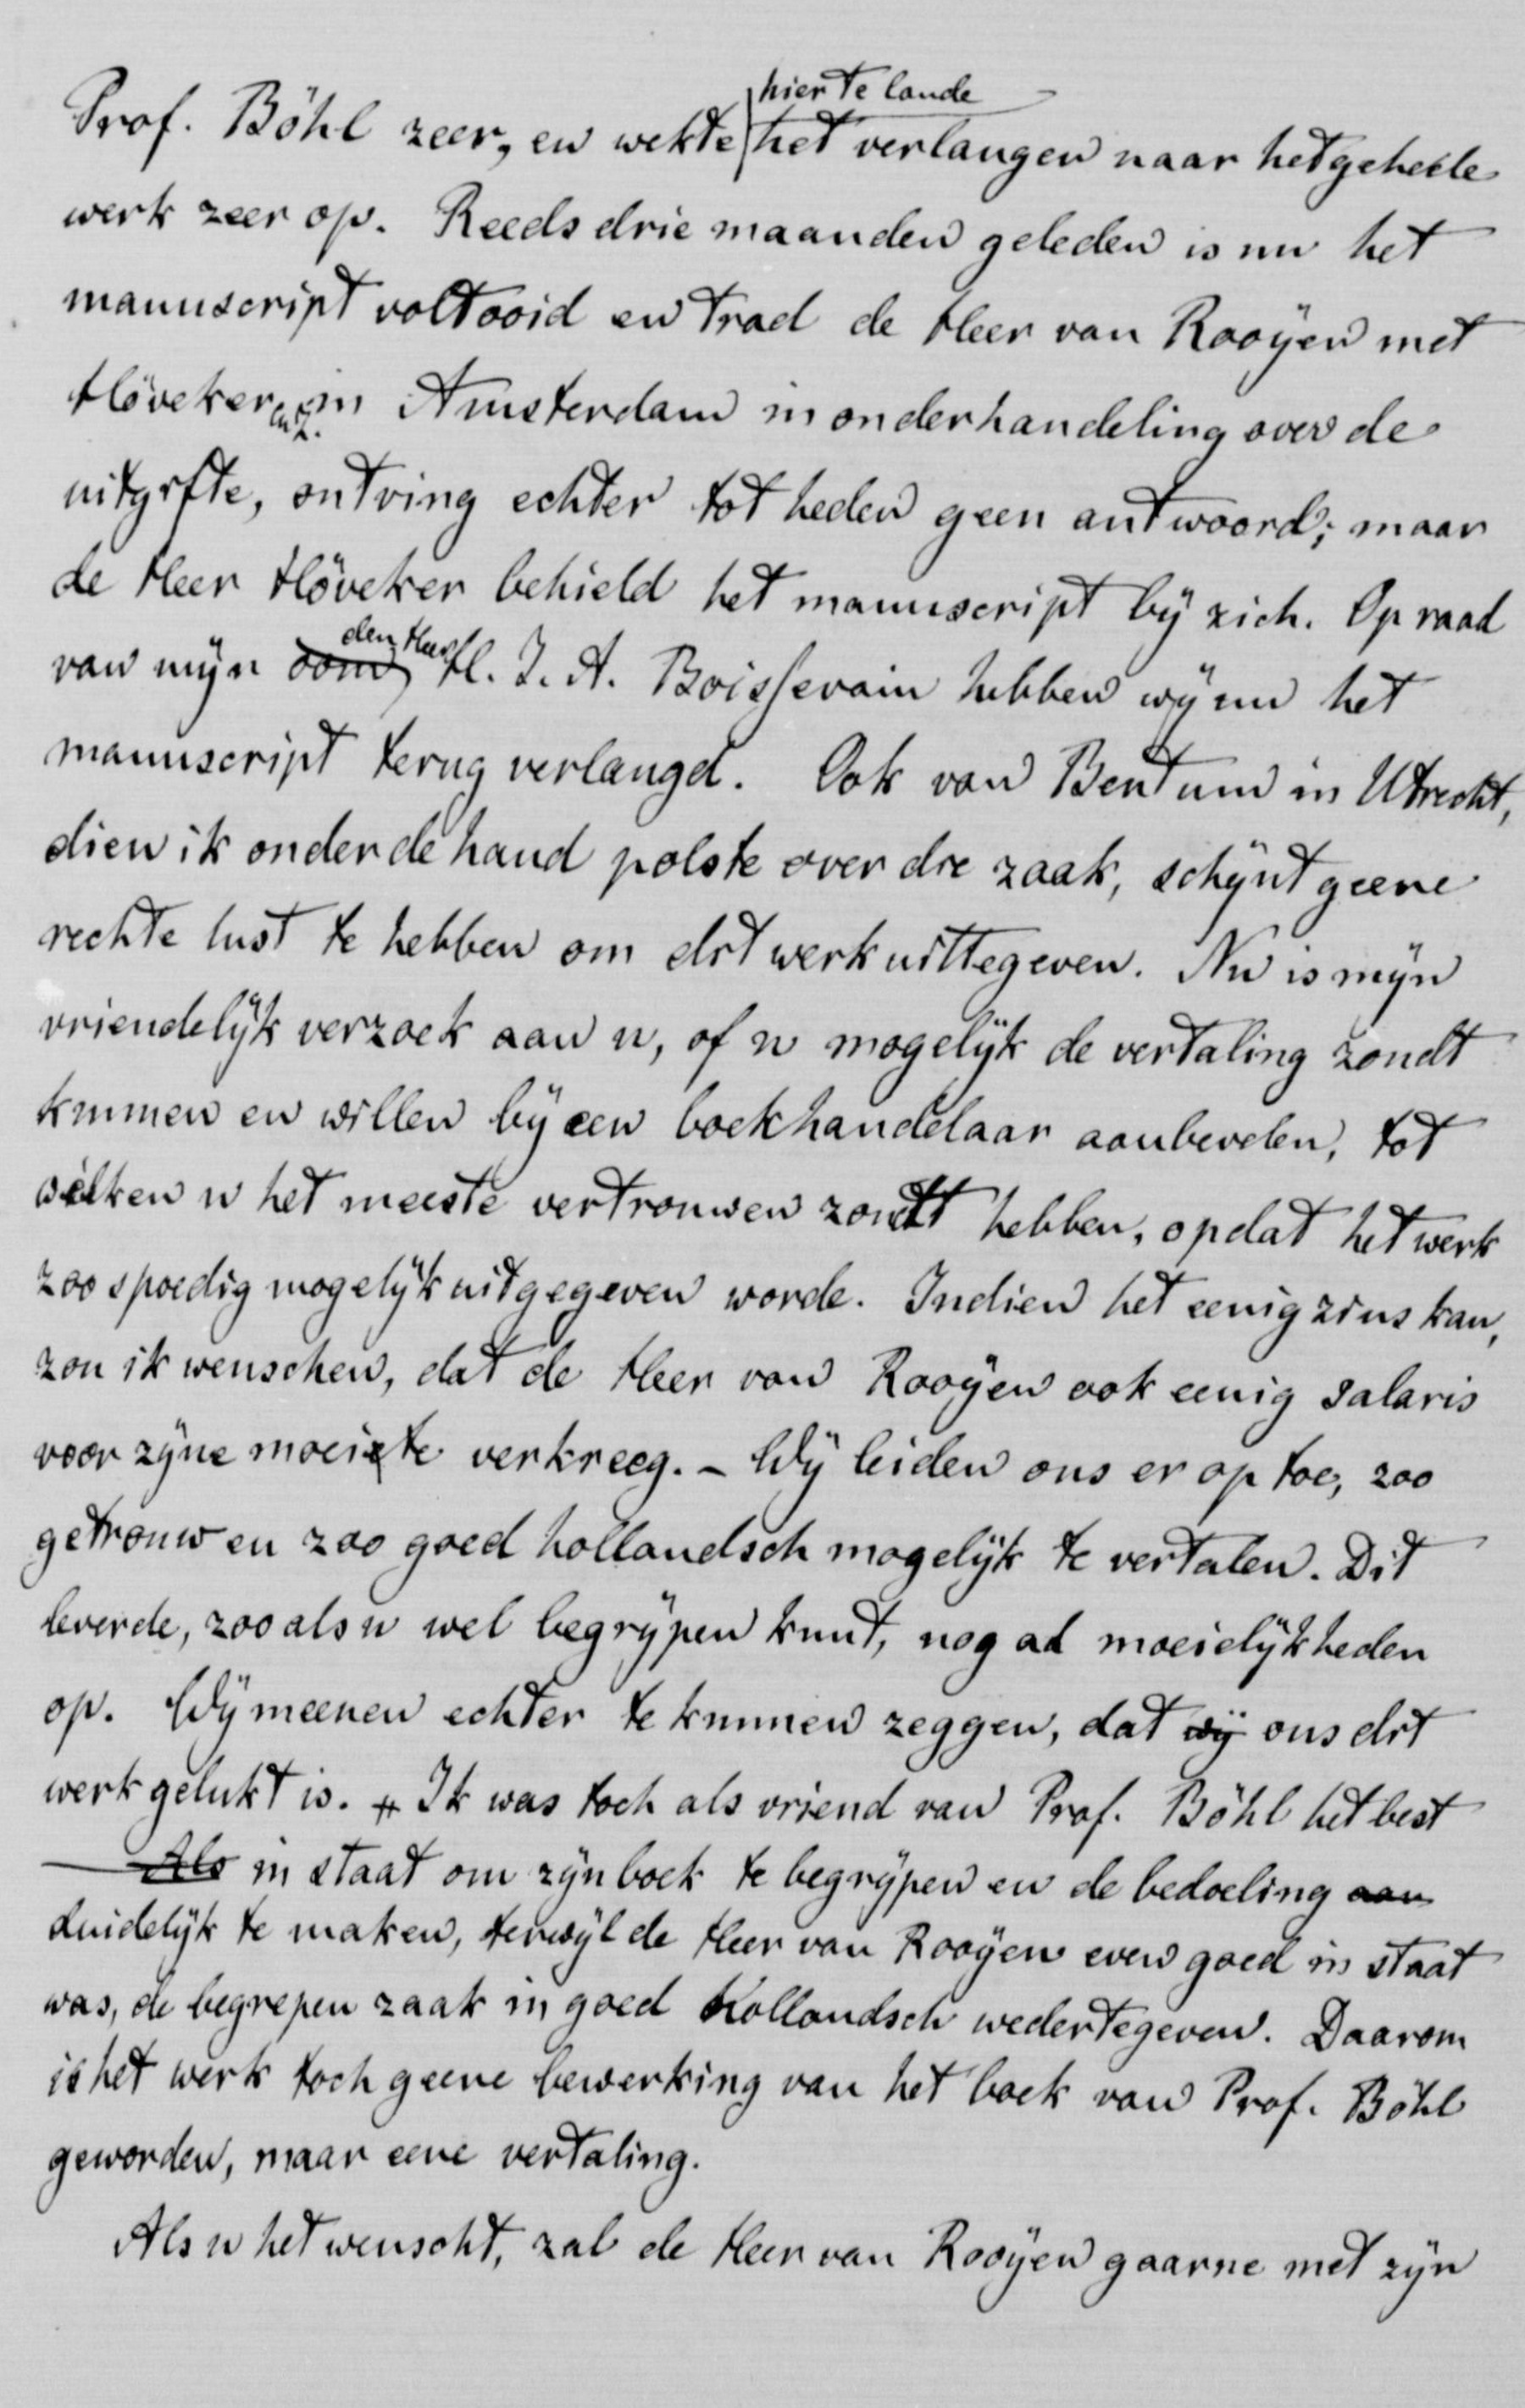 hier te lande
Prof. Böhl zeer, en wekte het verlangen naar het geheele
werk zeer op. Reeds drie maanden geleden is nu het
manuscript voltooid en trad de Heer van Rooÿen met
Höveker en Z. in Amsterdam in onderhandeling over de
uitgifte, ontving echter tot heden geen antwoord; maar
de Heer Höveker behield het manuscript bÿ zich. Op raad
den Heer
van mÿn oom H. J. A. Boissevain hebben wÿ nu het
manuscript terug verlangd. Ook van Bentum in Utrecht,
dien ik onder de hand polste over die zaak, schÿnt geene
rechte lust te hebben om dit werk uittegeven. Nu is mÿn
vriendelÿk verzoek aan u, of u mogelÿk de vertaling zoudt
kunnen en willen bÿ een boekhandelaar aanbevelen, tot
welken u het meeste vertrouwen zoudt hebben, opdat het werk
zoo spoedig mogelÿk uitgegeven worde. Indien het eenigzins kan,
zou ik wenschen, dat de Heer van Rooÿen ook eenig salaris
voor zÿne moeite verkreeg. – Wÿ leiden ons er op toe, zoo
getrouw en zoo goed hollandsch mogelÿk te vertalen. Dit
leverde, zooals u wel begrÿpen kunt, nog al moeielÿkheden
op. Wÿ meenen echter te kunnen zeggen, dat wÿ ons dit
werk gelukt is. Ik was toch als vriend van Prof. Böhl het best
Als in staat om zÿn boek te begrÿpen en de bedoeling aan
duidelÿk te maken, terwÿl de Heer van Rooÿen even goed in staat
was, de begrepen zaak in goed Hollandsch wedertegeven. Daarom
is het werk toch geene bewerking van het boek van Prof. Böhl
geworden, maar eene vertaling.
Als u het wenscht, zal de Heer van Rooÿen gaarne met zÿn